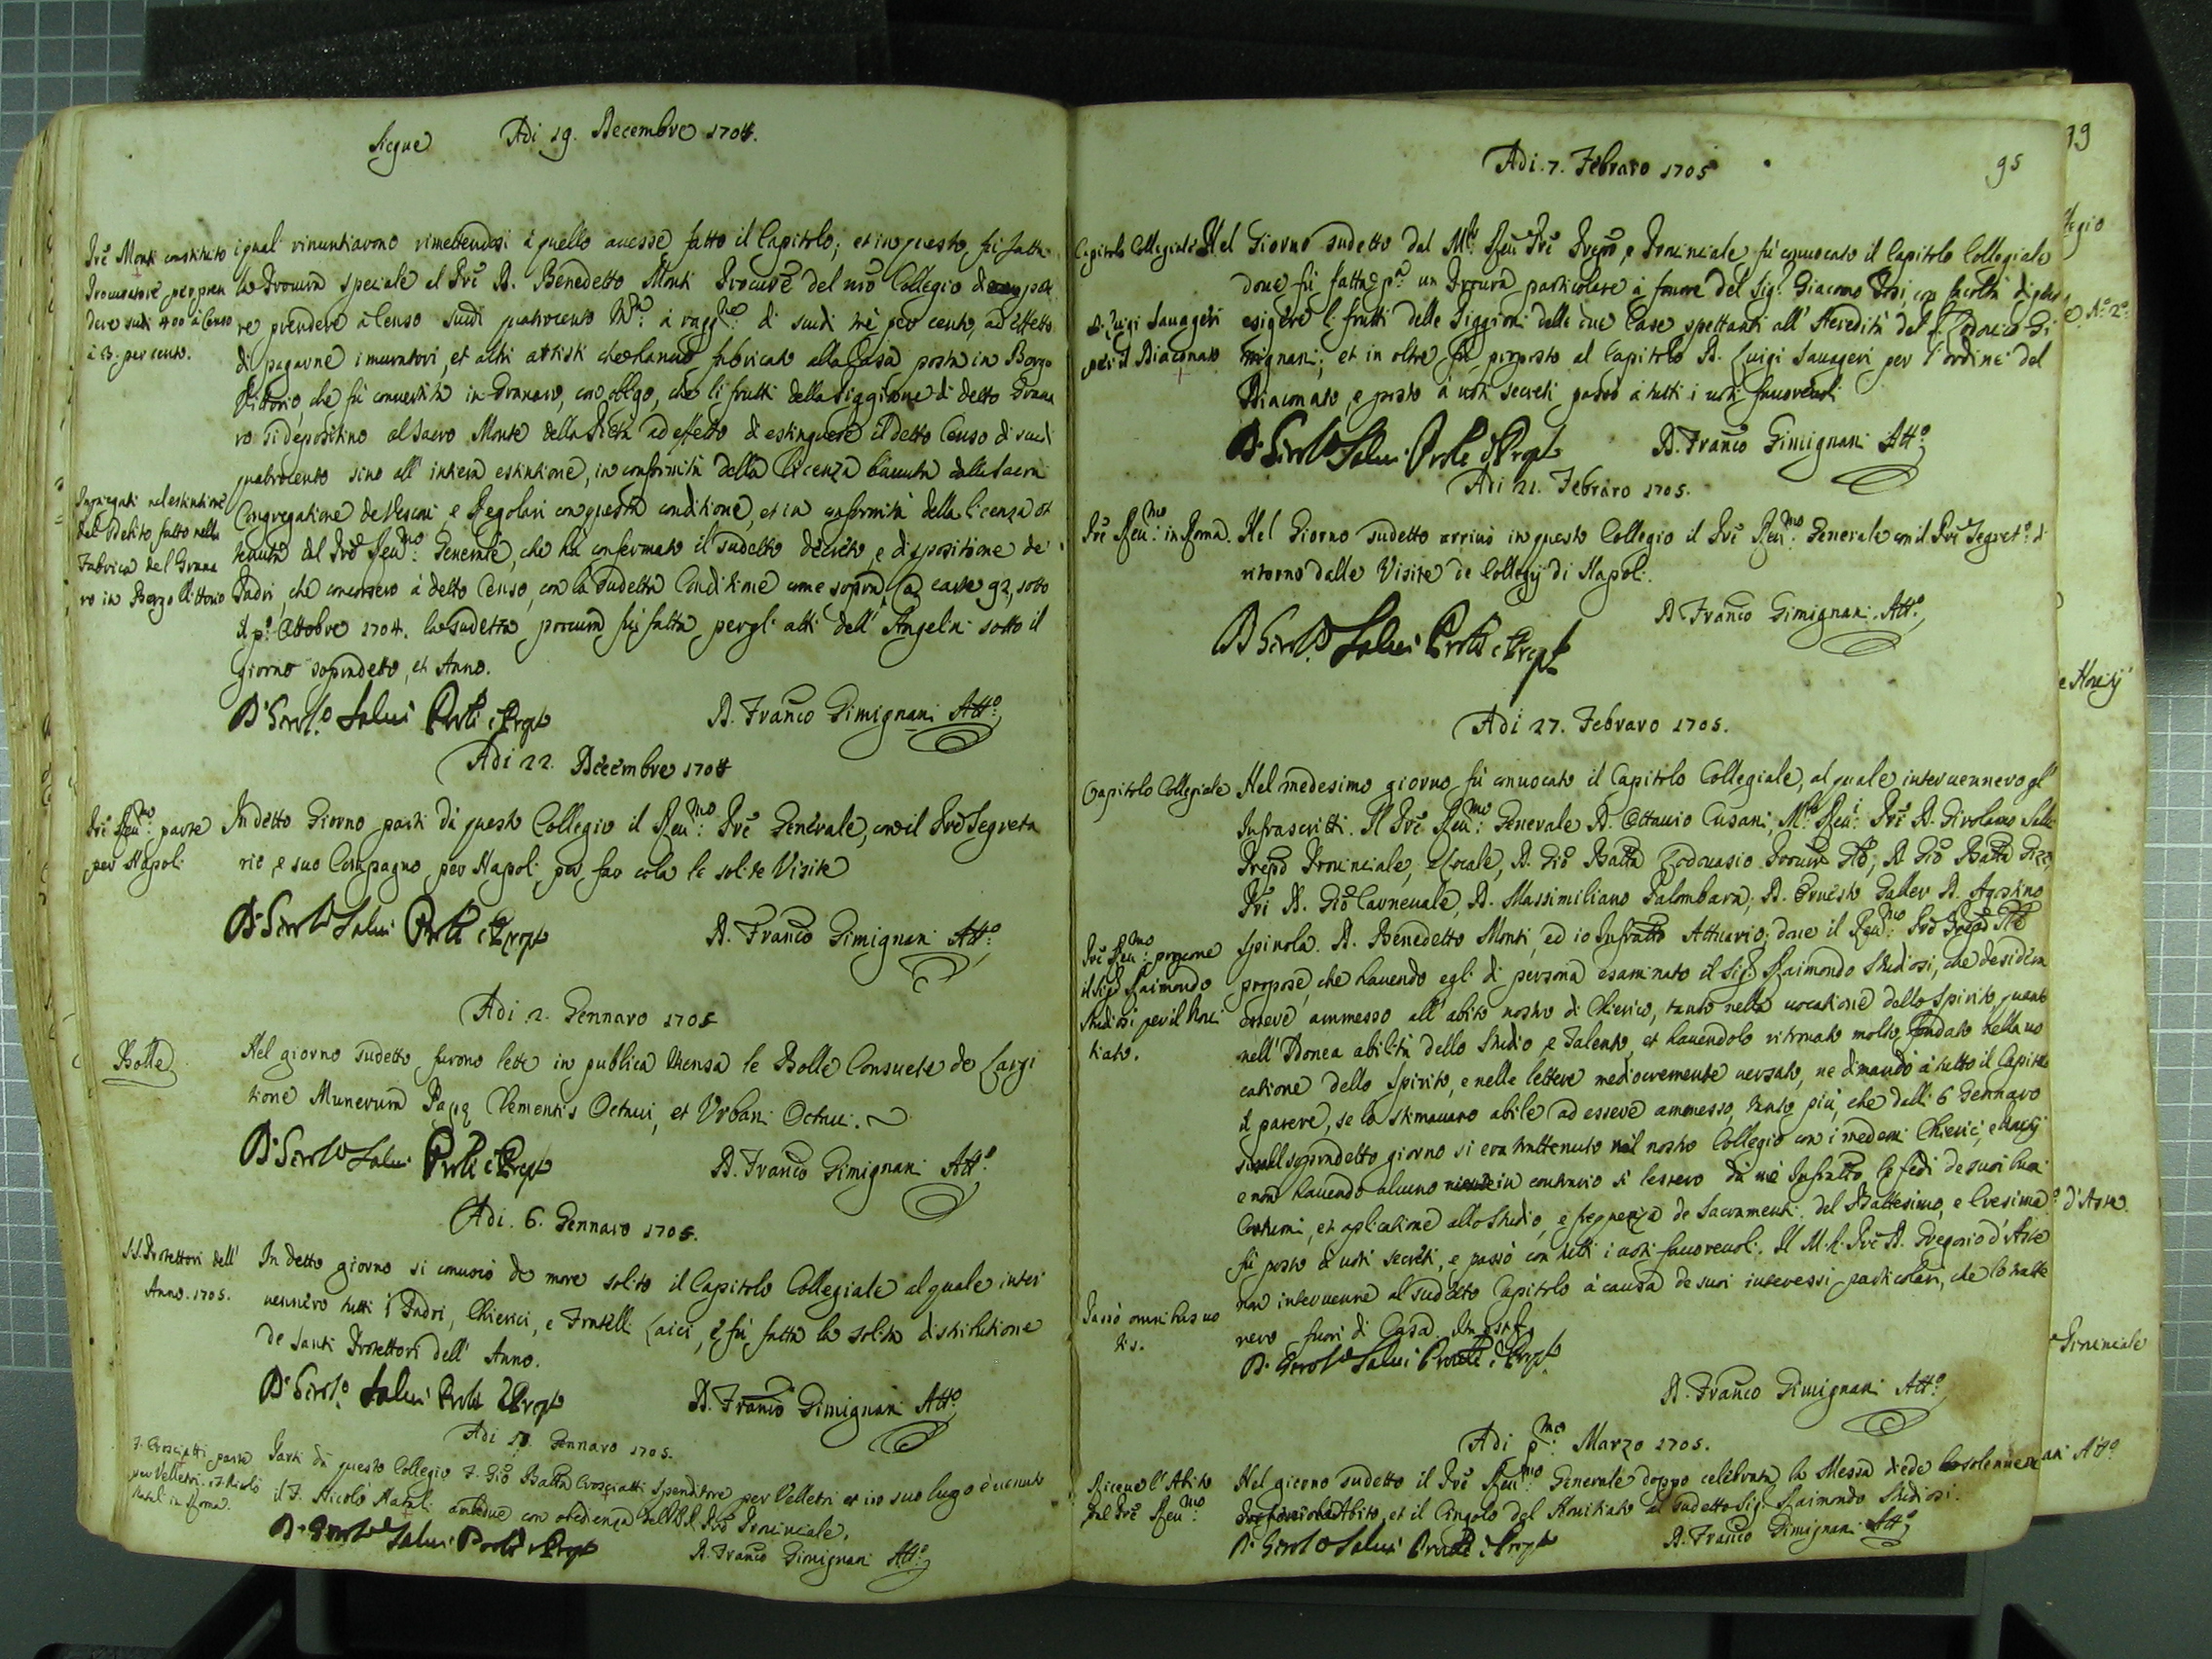 Siegue Adi 19. Decembre 1704.
Prē Monti constituito
Procuratore per pren
dere scudi 400 à Censo
à 3. per cento.
i quali rinuntiarono rimettendosi à quello avesse fatto il Capitolo; et in questo fù fatta
la Procura speciale al Prē D. Benedetto Monti Procurē del nrō Collegio
re prendere à Censo scudi quattrocento à ragg.ne di scudi trè per cento, ad effetto
di pagarne i muratori, et altri artisti che hanno fabricato alla Casa posta in Borgo
Vittorio, che fù convertita in Granaro, con obligo, che li frutti della Piggione di detto Grana
ro si depositino al Sacro Monte della Pietà ad effetto di estinguere il detto Censo di scudi
quattrocento sino all' intiera estintione, in conformità della licenza havuta dalla Sacra
Impiegati nel estintione
del Debito fatto nella
Fabrica del Grana
ro in Borgo Vittorio
Congregatione de Vescovi, e Regolari con questa conditione, et in conformità della licenza ot
tenuta dal Prē Reu.mo Generale, che hà confermato il sudetto decreto, e dispositione de
Padri, che concorsero à detto Censo, con la sudetta Conditione come sopra à carte 92, sotto
il p.o Ottobre 1704. la sudetta procura fù fatta per gl' atti dell' Angelini sotto il
giorno sopradetto, et Anno.
D. Girol.o Salvi Prole e Prep.to D. Franco Gimignani Att.o
Adi 22. Decembre 1704
Prē Reu.mo parte
per Napoli
In detto Giorno partì da questo Collegio il Reu.mo Prē Generale, con il Prē Segreta
rio, e suo Compagno per Napoli per far colà le solite Visite
D. Girol.o Salvi Prole e Prep.to D. Franco Gimignani Att.o
Adi 2. Gennaro 1705
Bolle
Nel giorno sudetto furono lette in publica Mensa le Bolle Consuete de Largi
tione Munerum Papæ Clementis Octavi, et Urbani Octavi.
D. Girol.o Salvi Prole e Prep.to D. Franco Gimignani Att.o
Adi. 6. Gennaro 1705.
SS. Protettori dell'
Anno. 1705.
In detto giorno si convocò de more solito il Capitolo Collegiale al quale inter
vennero tutti i Padri, Chierici, e Fratelli Laici, e fù fatta la solita distributione
de Santi Protettori dell' Anno.
D. Girol.o Salvi Prole e Prep.to D. Franco Gimignani Att.o
Adi Gennaro 1705.
F. Crosciatti parte
per Velletri. F. Nicolò
Natali in Roma.
Partì da questo Collegio F. Gio Batta Crosciatti Spenditore per Velletri et in suo luogo è venuto
il F. Nicolò Natali ambedue con obedienza del Prē Provinciale.
D. Girol.o Salvi Prole e Prep.to D. Franco Gimignani Att.o
Adi. 7. Febraro 1705
95
Capitolo Collegiale
Nel Giorno sudetto dal M.to Reu Prē Prepō, e Provinciale fù convocato il Capitolo Collegiale
dove fù fatta p.a un Procura particolare à favore del Sig. Giacomo con facoltà di
D. Luigi Savageri
per il Diaconato
esigere li frutti delle Piggioni delle due Case spettanti all' Heredità del q. Lodovico Gi
mignani; et in oltre fù proposto al Capitolo D. Luigi Savageri per l'ordine del
Diaconato, e posto à voti secreti passò à tutti i voti favorevoli
D. Girol.o Salvi Prole e Prep.to D. Franco Gimignani Att.o
Adi 21. Febraro 1705.
Prē Reu.mo in Roma.
Nel Giorno sudetto arrivò in questo Collegio il Prē Reu.mo Generale con il Prē Segret.o di
ritorno dalle Visite de Collegij di Napoli.
D. Girol.o Salvi Prole e Prep.to D. Franco Gimignani. Att.o
Adi 27. Febraro 1705.
Capitolo Collegiale
Nel medesimo giorno fù convocato il Capitolo Collegiale, al quale intervennero gl'
Infrascritti. Il Prē Reu.mo Generale D. Ottavio Cusani, M.to Reu: Prē D. Girolamo Salvi
Prepō Provinciale, e Locale, D. Gio Batta Lodovasio D. Gio Batta
Pri D. Gio Carnevale, D. Massimiliano Palombara, D. Ernesto Galler D. Agostino
Spinola. D. Benedetto Monti, ed io Infratto Attuario; dove il Reu.mo Prē
Prē Reu.mo propone
il Sig. Raimondo
Studiosi per il Novi
tiato.
propose, che havendo egli di persona esaminato il Sig. Raimondo Studiosi, che desidera
essere ammesso all' abito nostro di Chierico, tanto nella vocatione dello Spirito, quanto
nell' Idonea abilità dello Studio, e Talento, et havendolo ritrovato molto fondato nella vo
catione dello Spirito, e nelle lettere mediocremente versato, ne dimandò à tutto il Capitolo
il parere, se lo stimavano abile ad essere ammesso, tanto più, che dalli 6 Gennaro
sino al sopradetto giorno si era trattenuto nel nostro Collegio con i medemi Chierici, e
e non havendo alcuno in contrario si lessero da mè Infratto le fedi de suoi buoni
Costumi, et aplicatione allo Studio, e frequenza de Sacramenti. del Battesimo, e Cresima
fù posto à voti secreti, e passò con tutti i voti favorevoli. Il M. R. Prē D. Gregorio d'Aste
Passò omnibus vo
tis.
non intervenne al sudetto Capitolo à causa de suoi interessi particolari, che lo tratte
nero fuori di Casa.
D. Girol.o Salvi Prole e Prep.to
D. Franco Gimignani Att.o
Adi p.mo Marzo 1705.
Riceve l'Abito
dal Prē Reu.mo
Nel giorno sudetto il Prē Reu.mo Generale doppo celebrata la Messa diede
Abito, et il Cingolo del Novitiato al sudetto Sig. Raimondo Studiosi.
D. Girol.o Salvi Prole e Prep.to D. Franco Gimignani Att.o